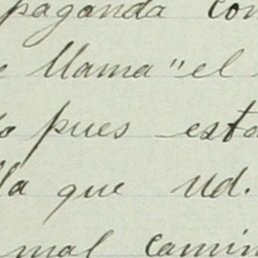 paganda con
llama" el
pues esta
la que Ud.
mal camin